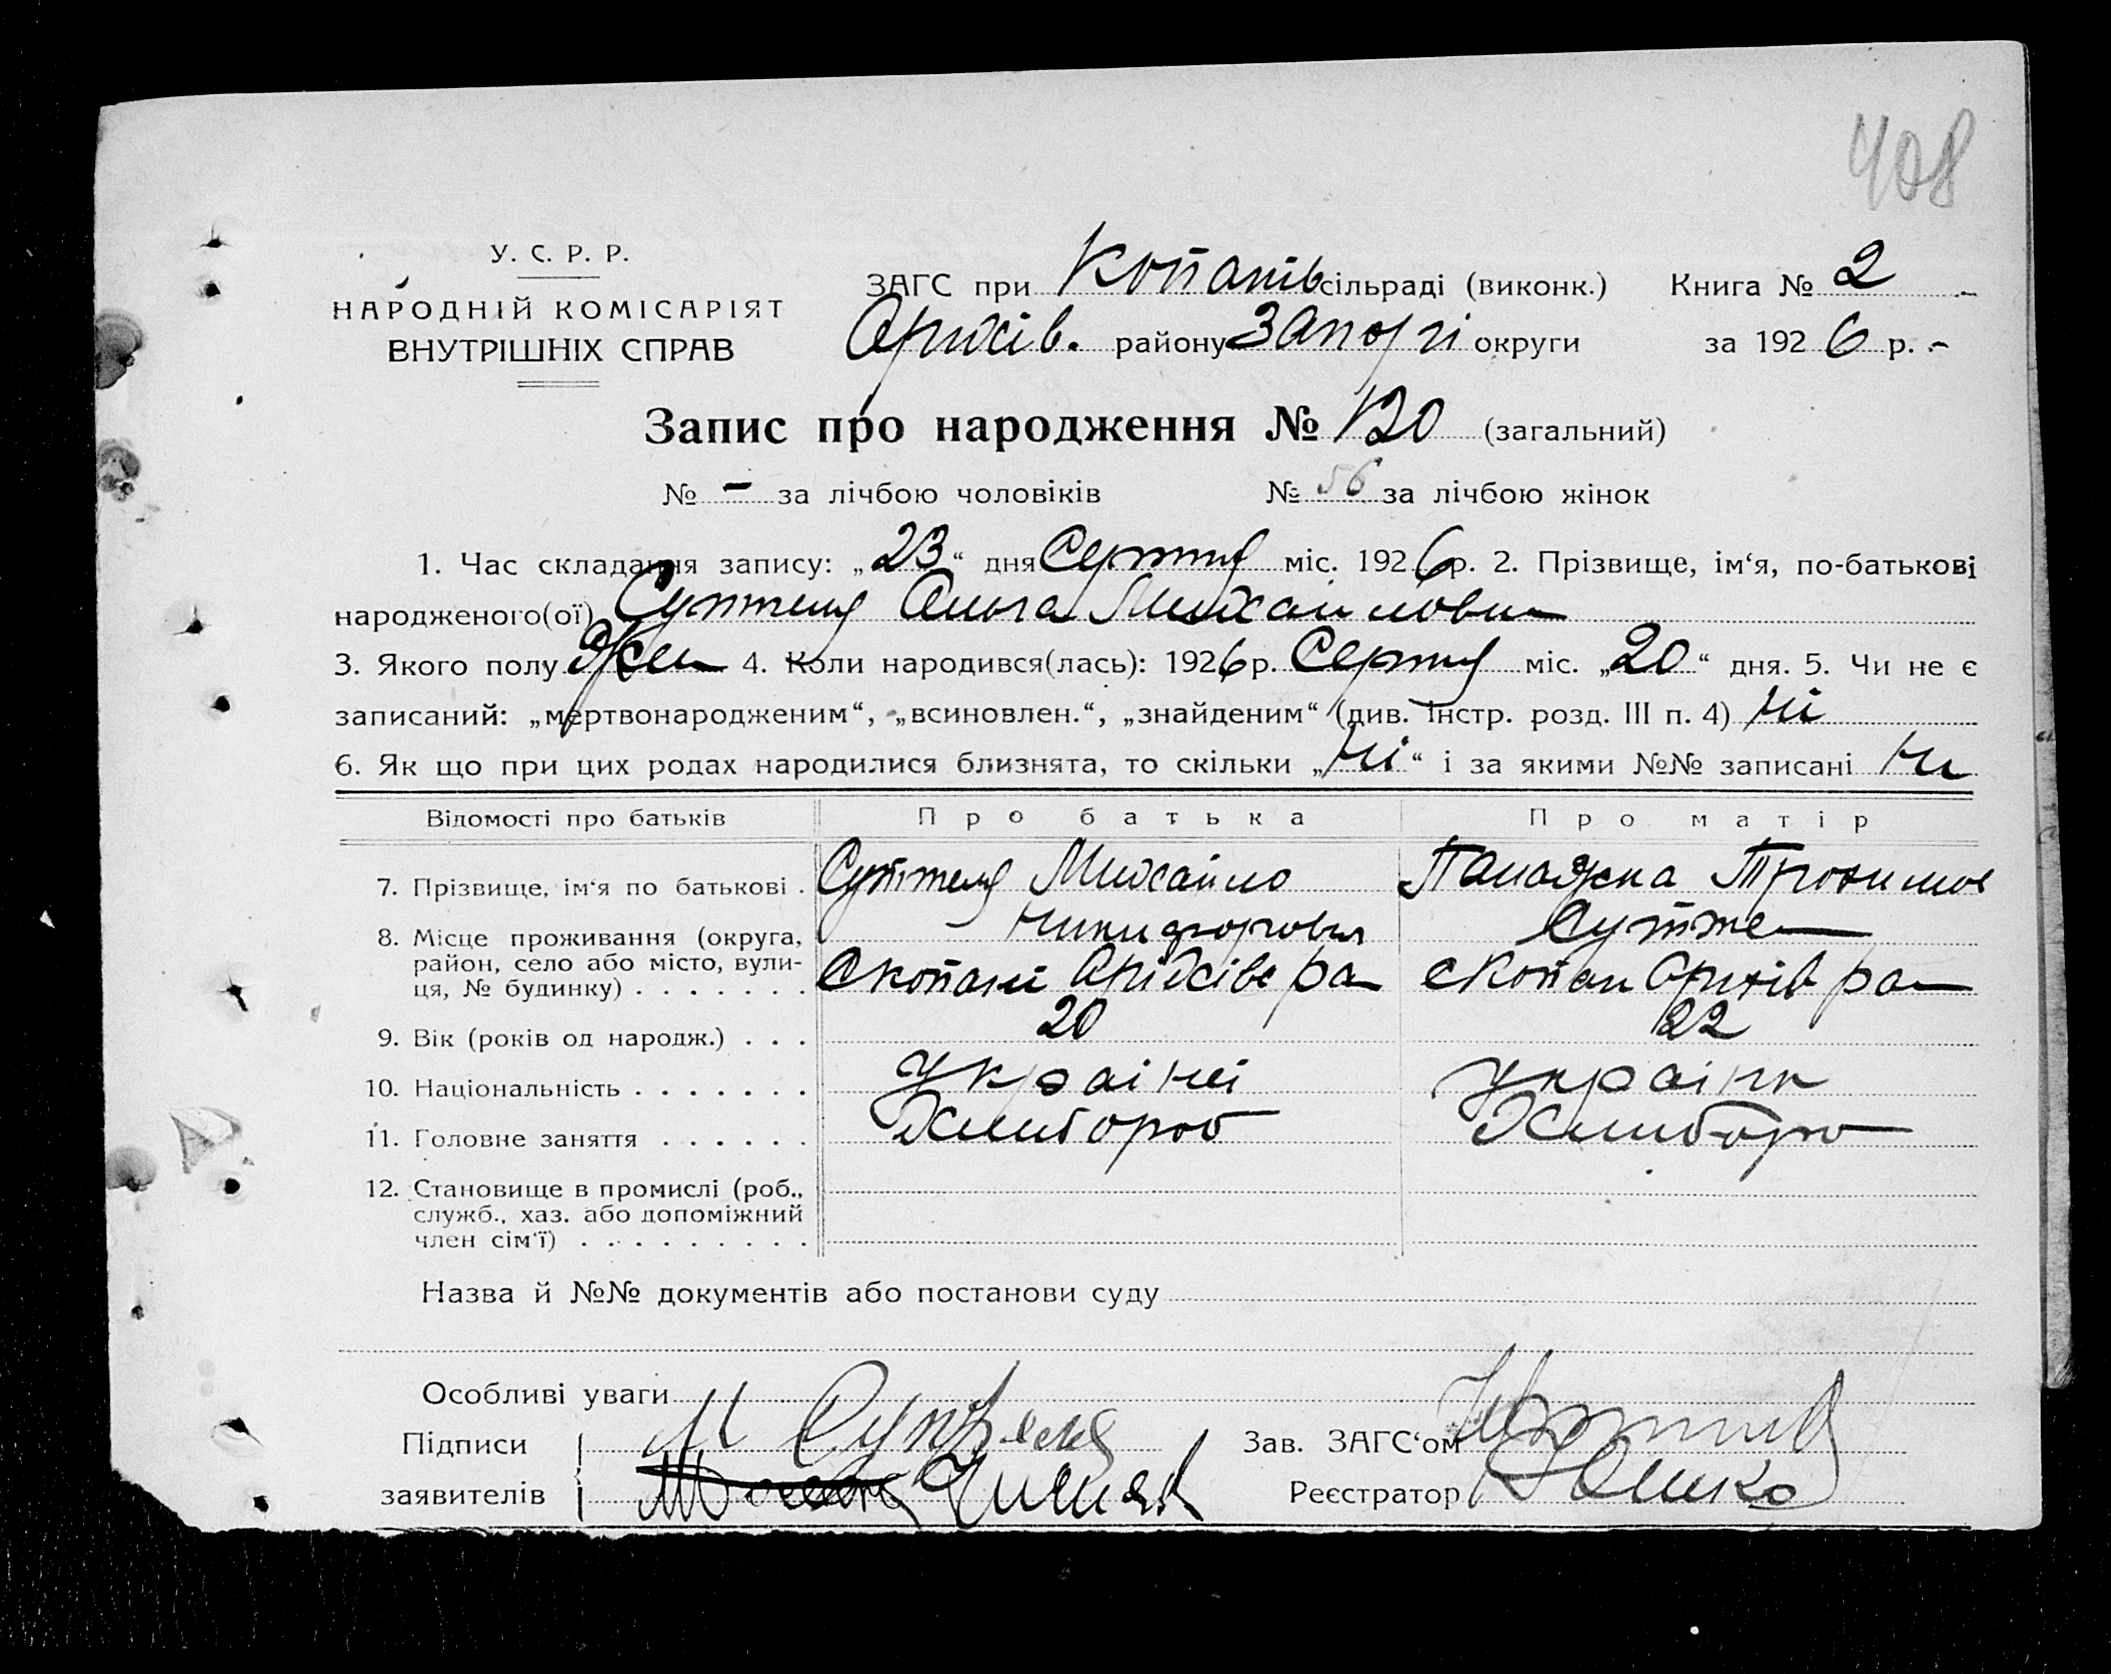 408
У. С. Р. Р.
НАРОДНІЙ КОМІСАРІЯТ
ВНУТРІШНІХ СПРАВ
ЗАГС при Копанів сільраді (виконк.) Книга № 2
Оріхів. району Запорі округи за 1926 р.
Запис про народження № 120 (загальний)
№ - за лічбою чоловіків № 56 за лічбою жінок
1. Час складання запису: „23“ дня міс. 1926 р. 2. Прізвище, ім‘я, по-батькові
народженого(ої) Ольга Михайловн
3. Якого полу Жен 4. Коли народився(лась): 1926 р. міс. „20“ дня. 5. Чи не є
записаний: „мертвонародженим“, „всиновлен.“, „знайденим“ (див. Інстр. розд. III п. 4) Ні
6. Як що при цих родах народилися близнята, то скільки „Ні“ і за якими №№ записані Ні
Відомості про батьків Про батька Про матір
7. Прізвище, ім‘я по батькові . Михайло
Никифорович
8. Місце проживання (округа,
район, село або місто, вули-
ця, № будинку) . . . . . . . с Копани Оріхівс ра с Копан Оріхів ра
9. Вік (років од народж.) . . . 20 22
10. Національність . . . . . . . Україні Україн
11. Головне заняття . . . . . . Хлибороб Хлиборо
12. Становище в промислі (роб.,
служб., хаз. або допоміжний
член сім‘ї) . . . . . . . . . .
Назва й №№ документів або постанови суду
Особливі уваги
Підписи М Зав. ЗАГС‘ом
заявителів Реєстратор